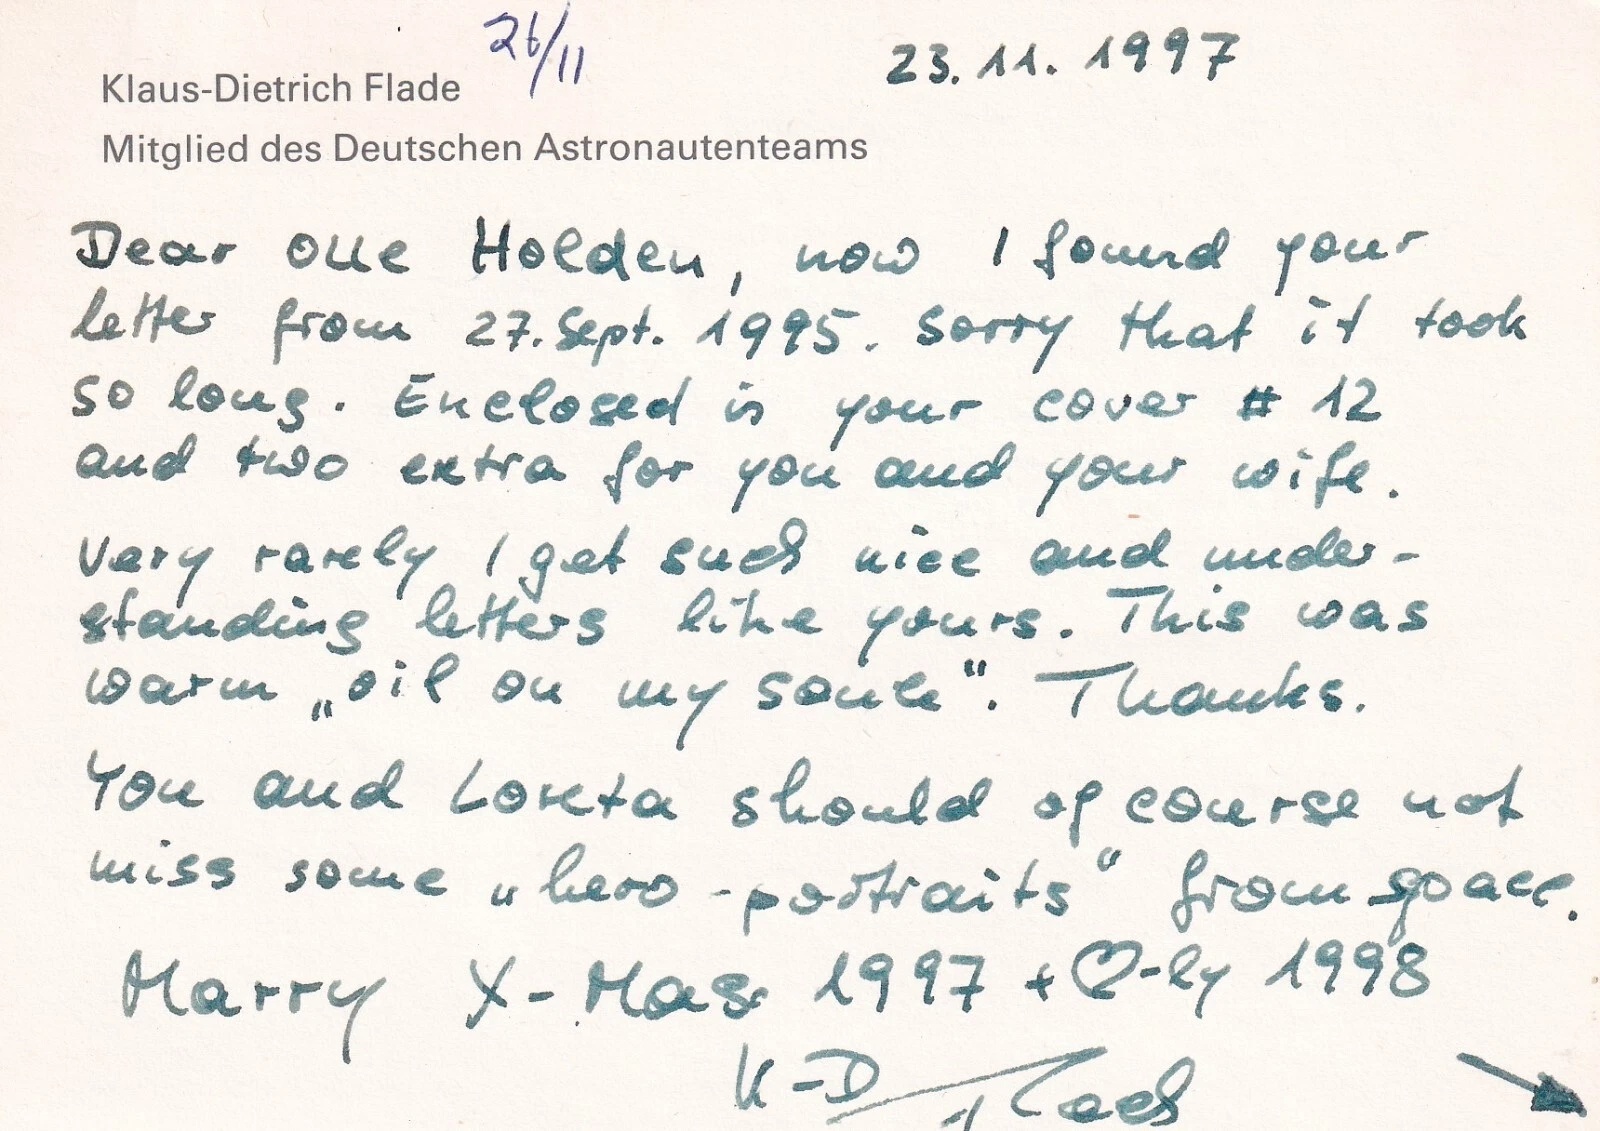 26/11
23.11.1997
Klaus-Dietrich Flade
Mitglied des Deutschen Astronautenteams
Dear Olle Holden, now I found your
letter from 27. Sept. 1995. Sorry that it took
so long. Enclosed is your cover # 12
and two extra for you and your wife.
Very rarely I get such nice and under-
standing letters like yours. This was
warm „oil on my soule“. Thanks.
You and Loreta should of course not
miss some „hero-portraits“ from space.
Marry X-Mas 1997 + ♡-ly 1998
K-D Flade